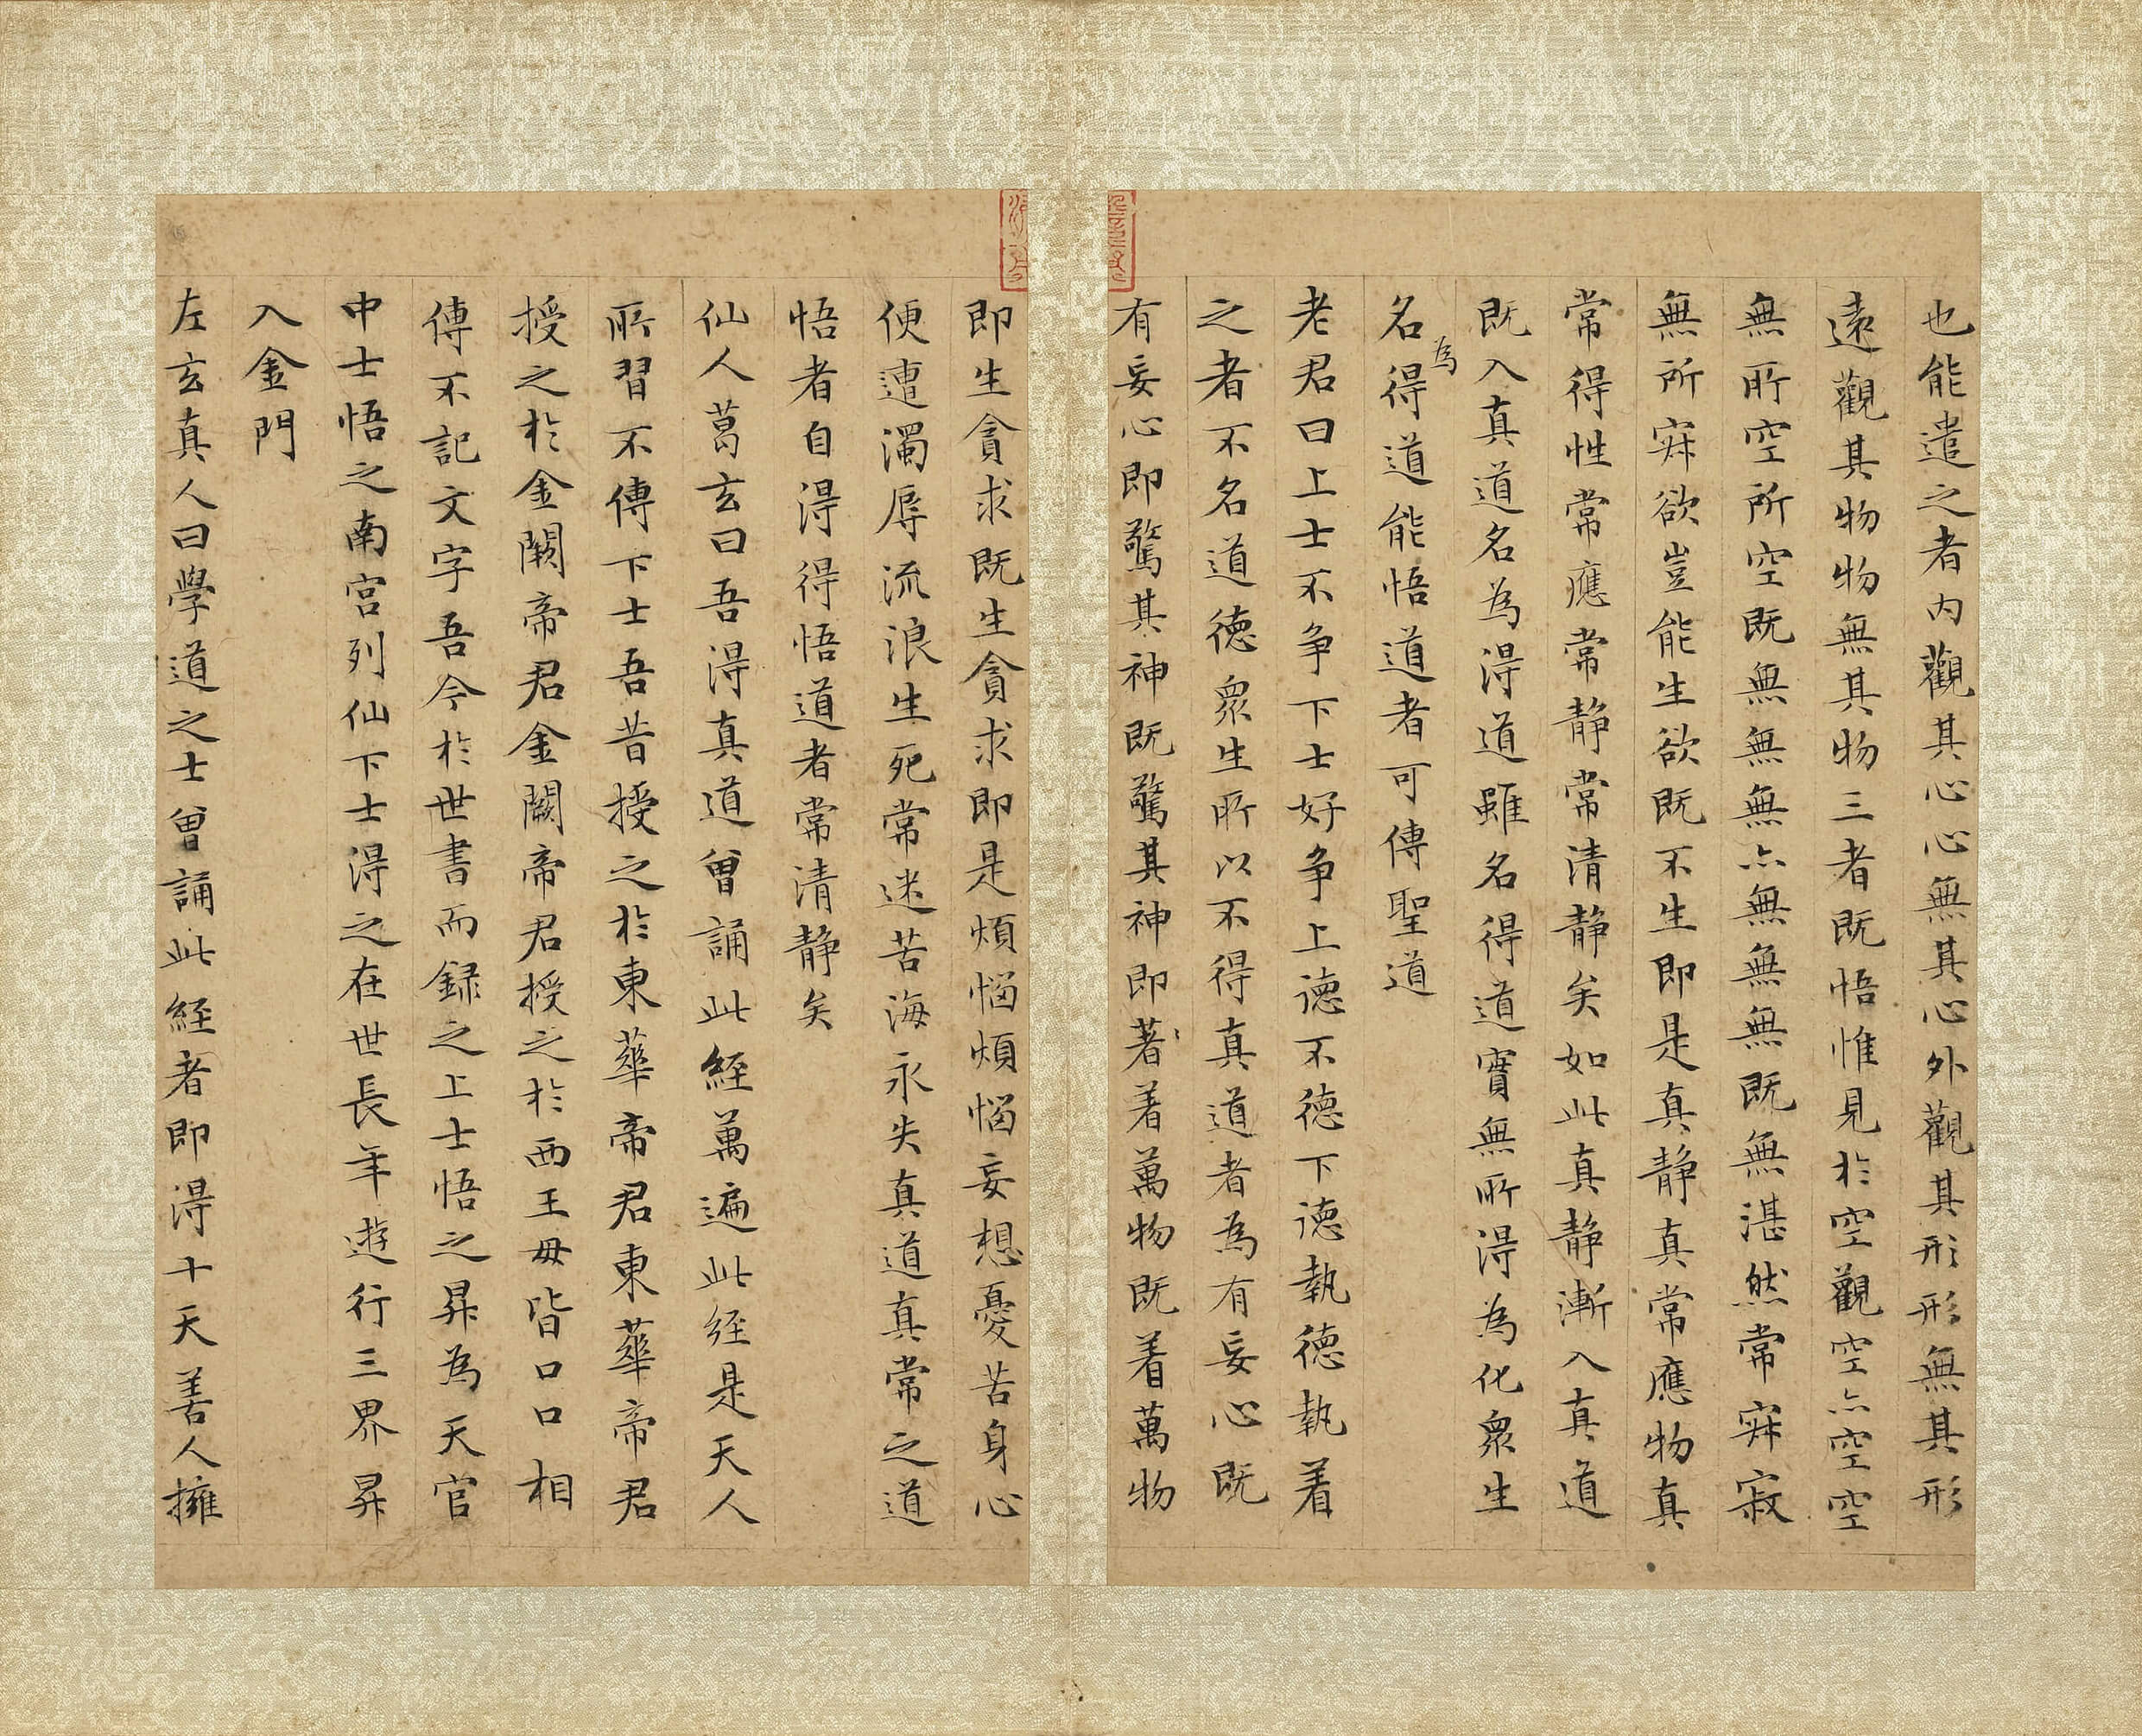 也能遣之者内觀其心心無其心外觀其形形無其形
遠觀其物物無其物三者既悟惟見於空觀空亦空空
無所空所空既無無無亦無無無既無湛然常寂寂
無所寂欲豈能生欲既不生即是真静真常應物真
常得性常應常静常清静矣如此真静漸入真道
既入真道名為得道雖名得道實無所得為化衆生
名為得道能悟道者可傳聖道
老君曰上士不争下士好争上德不德下德執德執着
之者不名道德衆生所以不得真道者為有妄心既
有妄心即驚其神既驚其神即著着萬物既着萬物
即生貪求既生貪求即是煩惱煩惱妄想憂苦身心
便遭濁辱流浪生死常迷苦海永失真道真常之道
悟者自得得悟道者常清静矣
仙人葛玄曰吾得真道曾誦此經萬遍此經是天人
所習不傳下士吾昔授之於東華帝君東華帝君
授之於金闕帝君金闕帝君授之於西王毋皆口口相
傳不記文字吾今於世書而録之上士悟之昇為天官
中士悟之南宫列仙下士得之在世長年遊行三界昇
入金門
左玄真人曰學道之士曾誦此經者即得十天善人擁